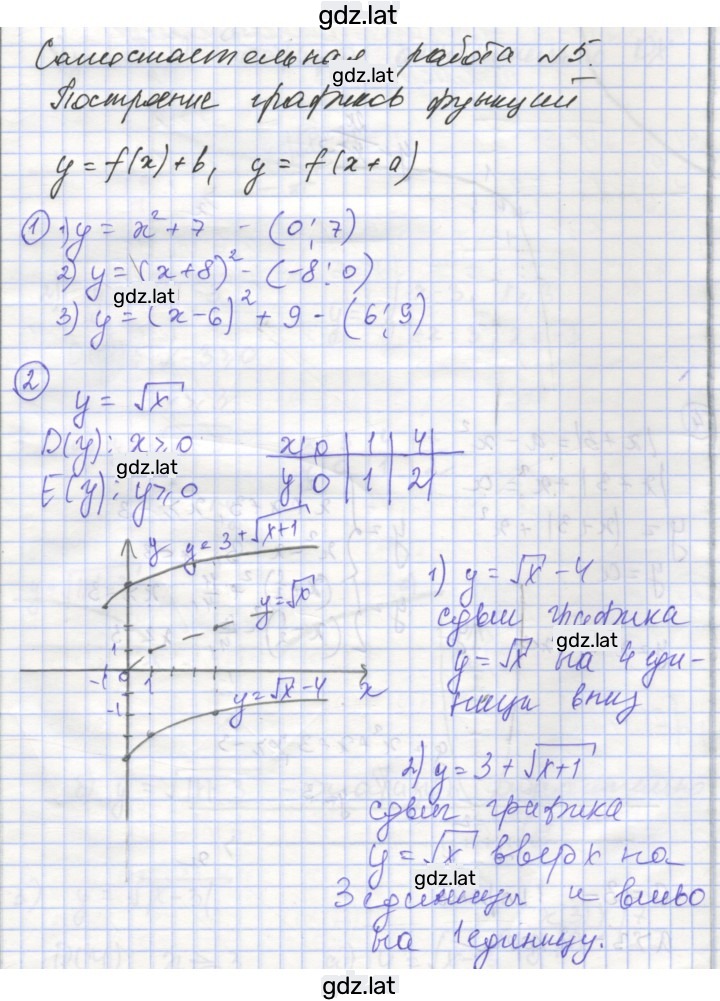 gdz.lat
Самостоятельная работа №5.
gdz.lat
Построение графиков функций
y = f(x) + b, y = f(x + a)
① 1) y = x² + 7 - (0; 7)
2) y = (x+8)² - (-8; 0)
gdz.lat
3) y = (x-6)² + 9 - (6; 9)
② y = √x
D(y): x ⩾ 0
x | 0 | 1 | 4
gdz.lat
E(y): y ⩾ 0
y | 0 | 1 | 2
y y = 3 + √x+1
1) y = √x - 4
y = √x
сдвиг графика
gdz.lat
1
y = √x на 4 еди-
-1 0 1 x
y = √x - 4
ницы вниз
-1
gdz.lat
2) y = 3 + √x+1
сдвиг графика
y = √x вверх на
gdz.lat
3 единицы и влево
на 1 единицу.
gdz.lat
gdz.lat